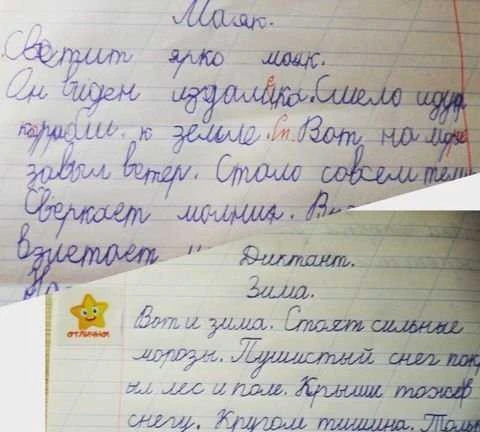 Маяк.
Светит ярко маяк.
Он виден издалека. Смело идут
корабли. к земле. Сп. Вот на море
завыл ветер. Стало совсем
Сверкает молния.
взлетает
Диктант.
Зима.
отлично
Вот и зима. Стоят сильные
морозы. Пушистый снег пок
ыл лес и поле. Крыши тоже в
снегу. Кругом тишина.